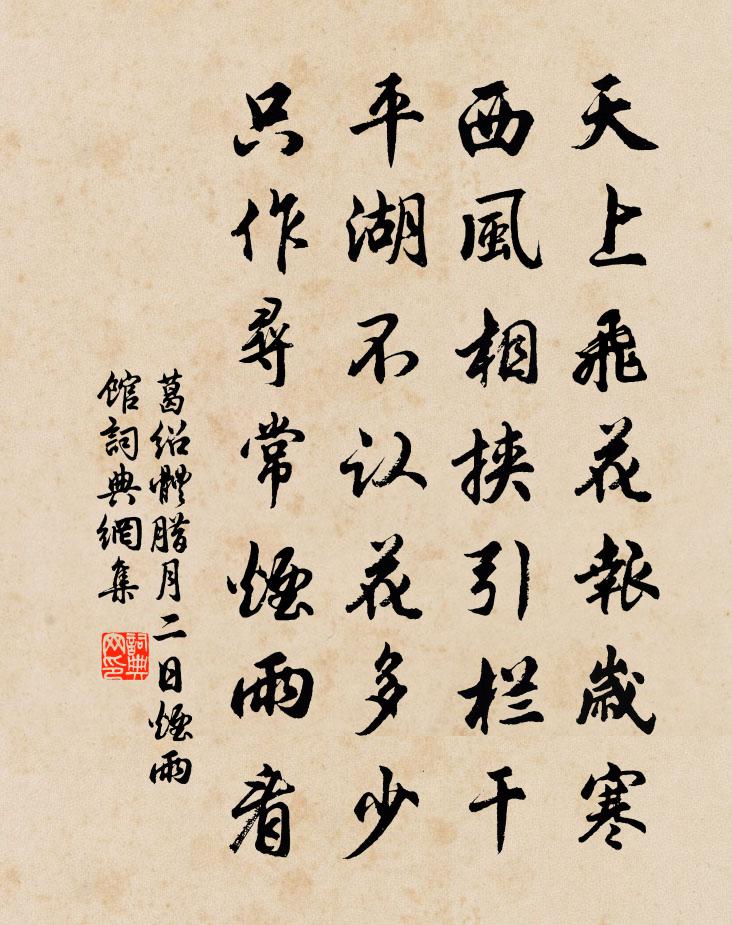 天上飛花報歲寒
西風相挾引栏干
平湖不认花多少
只作尋常煙雨看
葛绍體腊月二日煙雨
館詞典網集
詞典
网印